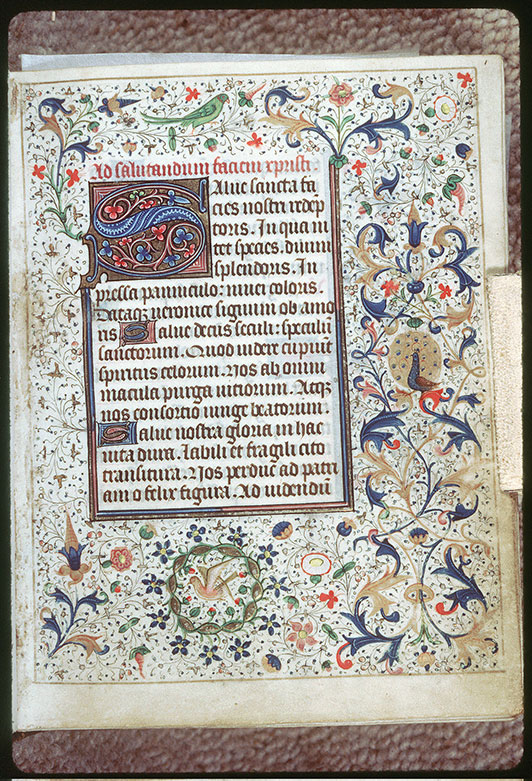 Ad salutandum faciem xpristi.
Salue sancta fa
cies nostri redep
toris. In qua ni
tet species. diuini
splendoris. In
pressa panniculo: niuei coloris.
Dataqz ueronice signum ob amo
ris Salue decus seculi: speculū
sanctorum. Quod uidere cupiūt
spiritus celorum. Nos ab omni
macula purga uitiorum. Atqz
nos consortio iunge beatorum.
Salue nostra gloria in hac
uita dura. Labili et fragili cito
transitura. Nos perduc ad patri
am o felix figura. Ad uidendū